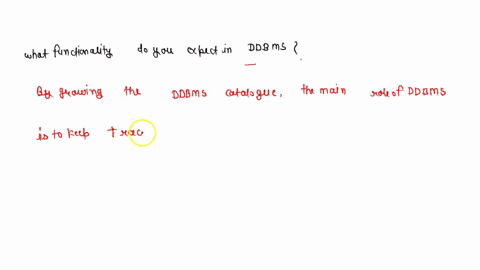 what functionality do you expect in DDBMS ?
By growing the DDBMS catalogue, the main role of DDBMS
is to keep trac